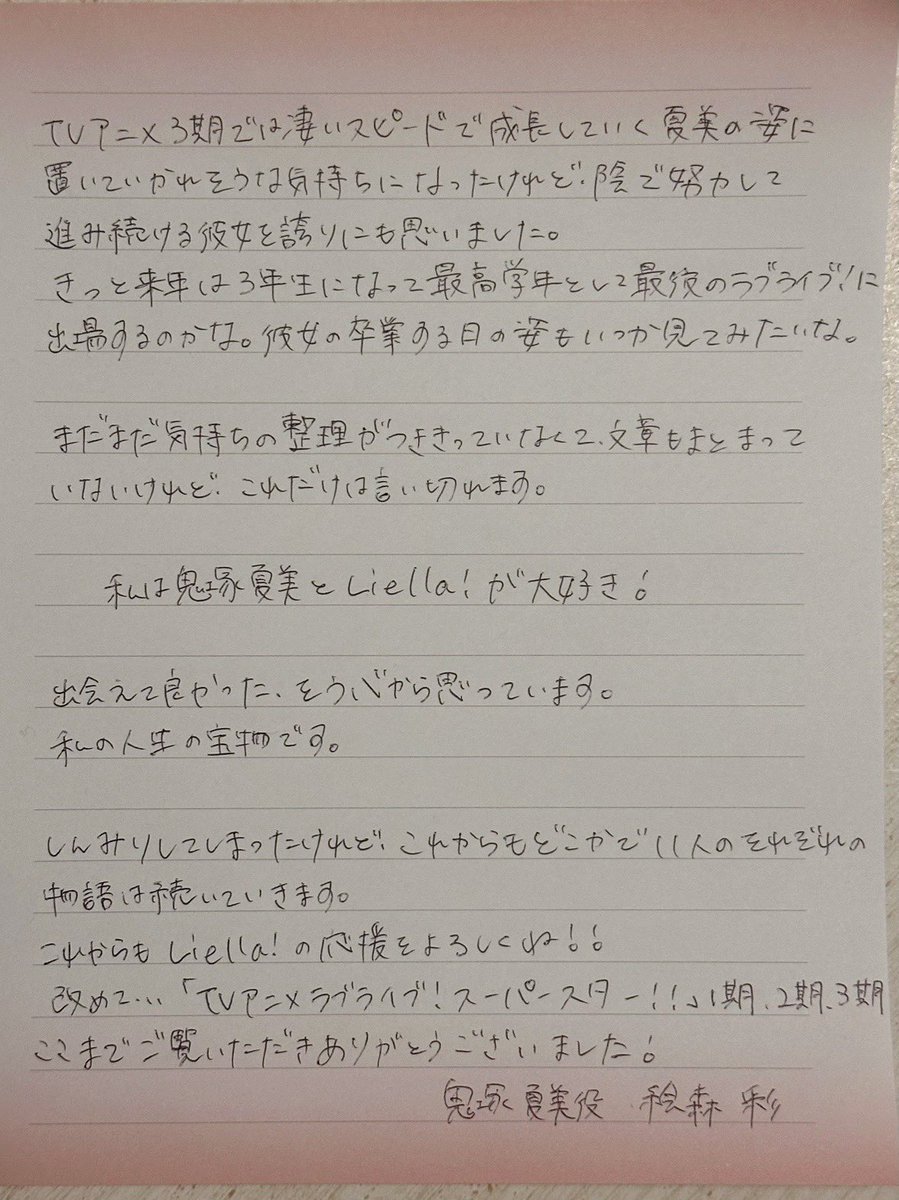 TVアニメ3期では凄いスピードで成長していく夏美の姿に
置いていかれそうな気持ちになったけれど、陰で努力して
進み続ける彼女を誇りにも思いました。
きっと来年は3年生になって最高学年として最後のラブライブ!に
出場するのかな。彼女の卒業する日の姿もいつか見てみたいな。
まだまだ気持ちの整理がつききっていなくて、文章もまとまって
いないけれど、これだけは言い切れます。
私は鬼塚夏美とLiella!が大好き!
出会えて良かった、そう心から思っています。
私の人生の宝物です。
しんみりしてしまったけれど、これからもどこかで11人のそれぞれの
物語は続いていきます。
これからもLiella!の応援をよろしくね!!
改めて…「TVアニメラブライブ!スーパースター!!」1期、2期、3期
ここまでご覧いただきありがとうございました!
鬼塚夏美役 絵森 彩